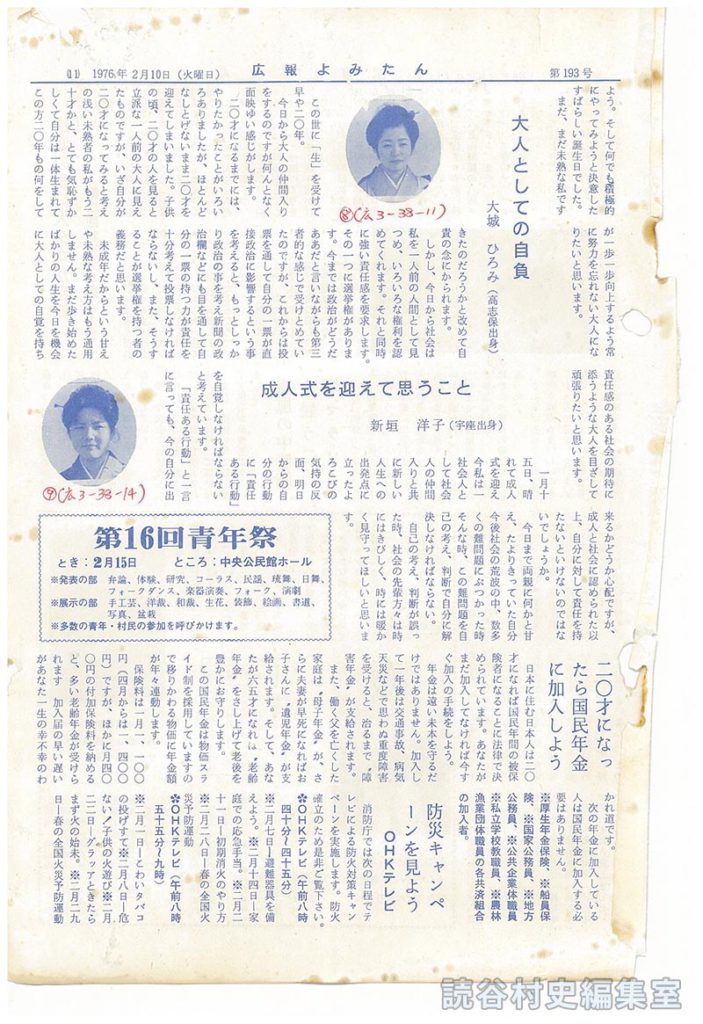 (11) 1976年2月10日（火曜日） 広報よみたん 第193号
よう。そして何でも積極的
にやってみようと決意した
すばらしい誕生日でした。
まだ、まだ未熟な私です
が一歩一歩向上するよう常
に努力を忘れない大人にな
りたいと思います。
大人としての自負
大城 ひろみ（高志保出身）
この世に「生」を受けて
早や二〇年。
今日から大人の仲間入り
をするのですが何んとなく
面映ゆい感じがします。
二〇才になるまでには、
やりたかったことがいろい
ろありましたが、ほとんど
なしとげないまま二〇才を
迎えてしまいました。子供
の頃、二〇才の人を見ると
立派な一人前の大人に見え
たものですが、いざ自分が
二〇才になってみると考え
の浅い未熟者の私がもう二
十才かと、とても気恥ずか
しくて自分は一体生まれて
この方二〇年もの何をして
きたのだろうかと改めて自
責の念にかられます。
しかし、今日から社会は
私を一人前の人間として見
つめ、いろいろな権利を認
めてくれます。それと同時
に強い責任感を要求します。
その一つに選挙権がありま
す。今までは政治がどうだ
ああだと言いながらも第三
者的な感じで受けとめてい
たのですが、これからは投
票を通して自分の一票が直
接政治に影響するという事
を考えると、もっとしっか
り政治の事を考え新聞の政
治欄などにも目を通して自
分の一票の持つ力が責任を
十分考えて投票しなければ
ならないし、また、そうす
ることが選挙権を持つ者の
義務だと思います。
未成年だからという甘え
や未熟な考え方はもう通用
しません。まだ歩き始めた
ばかりの人生を今日を機会
に大人としての自覚を持ち
責任感のある社会の期待に
添うような大人を目ざして
頑張りたいと思います。
⑧(広3-38-11)
成人式を迎えて思うこと
新垣 洋子（字座出身）
一月十
五日、晴
れて成人
式を迎え
今私は一
社会人と
して社会
人の仲間
入りと共
に新しい
人生への
出発点に
立ったよ
ろこびの
気持の反
面、明日
からの自
分の行動
に「責任
ある行動」
を自覚しなければならない
と考えています。
「責任ある行動」と一言
に言っても、今の自分に出
来るかどうか心配ですが、
成人と社会に認められた以
上、自分に対して責任を持
たないといけないのではな
いでしょうか。
今日まで両親に何かと甘
え、たよりきっていた自分
今後社会の荒波の中、数多
くの難問題にぶつかった時
そんな時、この難問題を自
己の考え、判断で自分に解
決しなければならない。
自己の考え、判断が誤っ
た時、社会の先輩方々は時
にはきびしく、時には暖か
く見守ってほしいと思いま
す。
⑨(広3-38-14)
第16回青年祭
とき：2月15日 ところ：中央公民館ホール
※発表の部 弁論、体験、研究、コーラス、民謡、琉舞、日舞、
フォークダンス、楽器演奏、フォーク、演劇
※展示の部 手工芸、洋裁、和裁、生花、装飾、絵画、書道、
写真、盆栽
※多数の青年・村民の参加を呼びかけます。
二〇才になっ
たら国民年金
に加入しよう
日本に住む日本人は二〇
才になれば国民年間の被保
険者になることに法律で決
められています。あなたが
まだ加入してなければ今す
ぐ加入の手続をしよう。
年金は遠い未来を守るだ
けではありません。加入し
て一年後は交通事故、病気
天災などで思わぬ重度障害
を受けると、治るまで〝障
害年金〟が支給されます。
また、働く父を亡くした
家庭は〝母子年金〟が、さ
らに夫妻が早死になればお
子さんに〝遺児年金〟が支
給されます。そして、あな
たが六五才になれば〝老齢
年金〟をさし上げて老後を
豊かにお守りします。
この国民年金は物価スラ
イド制を採用していますの
で移りかわる物価に年金額
が年々連動します。
保険料は一月一、一〇〇
円（四月からは一、四〇〇
円）ですが、ほかに月四〇
〇円の付加保険料を納める
と、多い老齢年金が受けら
れます 加入届の早い遅い
があなた一生の幸不幸のわ
かれ道です。
次の年金に加入している
人は国民年金に加入する必
要はありません。
※厚生年金保険、※船員保
険、※国家公務員、※地方
公務員、※公共企業体職員
※私立学校教職員、※農林
漁業団体職員の各共済組合
の加入者。
防災キャンペ
ーンを見よう
ＯＨＫテレビ
消防庁では次の日程でテ
レビによる防火対策キャン
ペーンを実施します。防火
確立のため是非ご覧下さい。
✿ＯＨＫテレビ（午前八時
四十分～四十五分）
※二月七日―避難器具を備
えよう。※二月十四日―家
庭での応急手当。※二月二
十一日―初期消火のやり方
※二月二八日―春の全国火
災予防運動
✿ＯＨＫテレビ（午前八時
五十五分～九時）
※二月一日―こわいタバコ
の投げすて※二月八日―危
ない！子供の火遊び※二月
二二日―グラッアときたら
まず火の始末。※二月二九
日―春の全国火災予防運動
読谷村史編集室